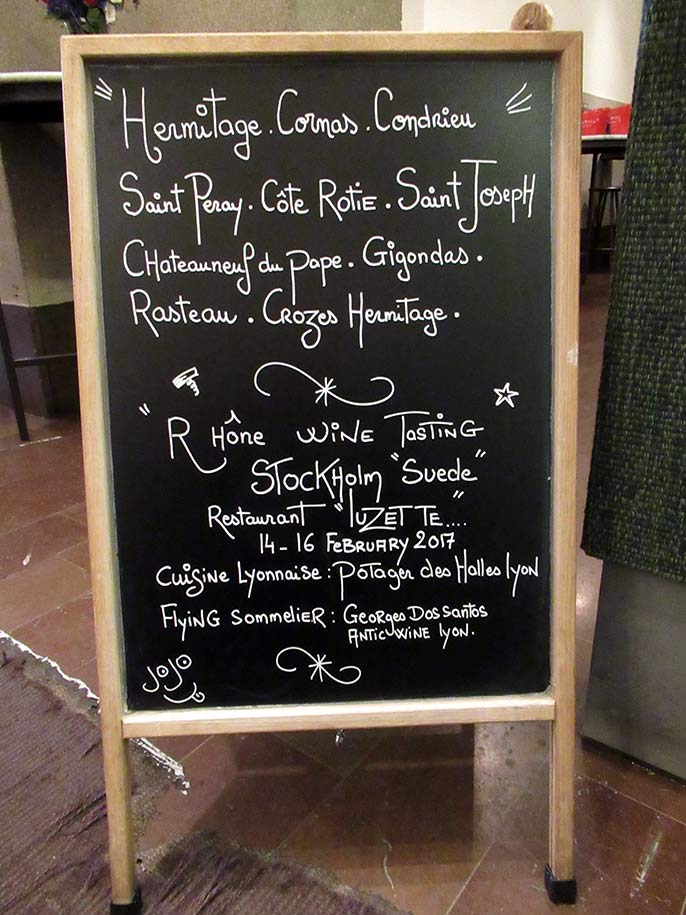 Hermitage . Cornas . Condrieu
Saint Peray . Côte Rotie . Saint Joseph
Chateauneuf du pape . Gigondas .
Rasteau . Crozes Hermitage .
" Rhône wine Tasting
Stockholm "Suede"
Restaurant "Luzette"....
14 - 16 February 2017
Cuisine Lyonnaise : potager des Halles Lyon
Flying Sommelier : Georges Dos Santos
Antic wine Lyon.
JoJo